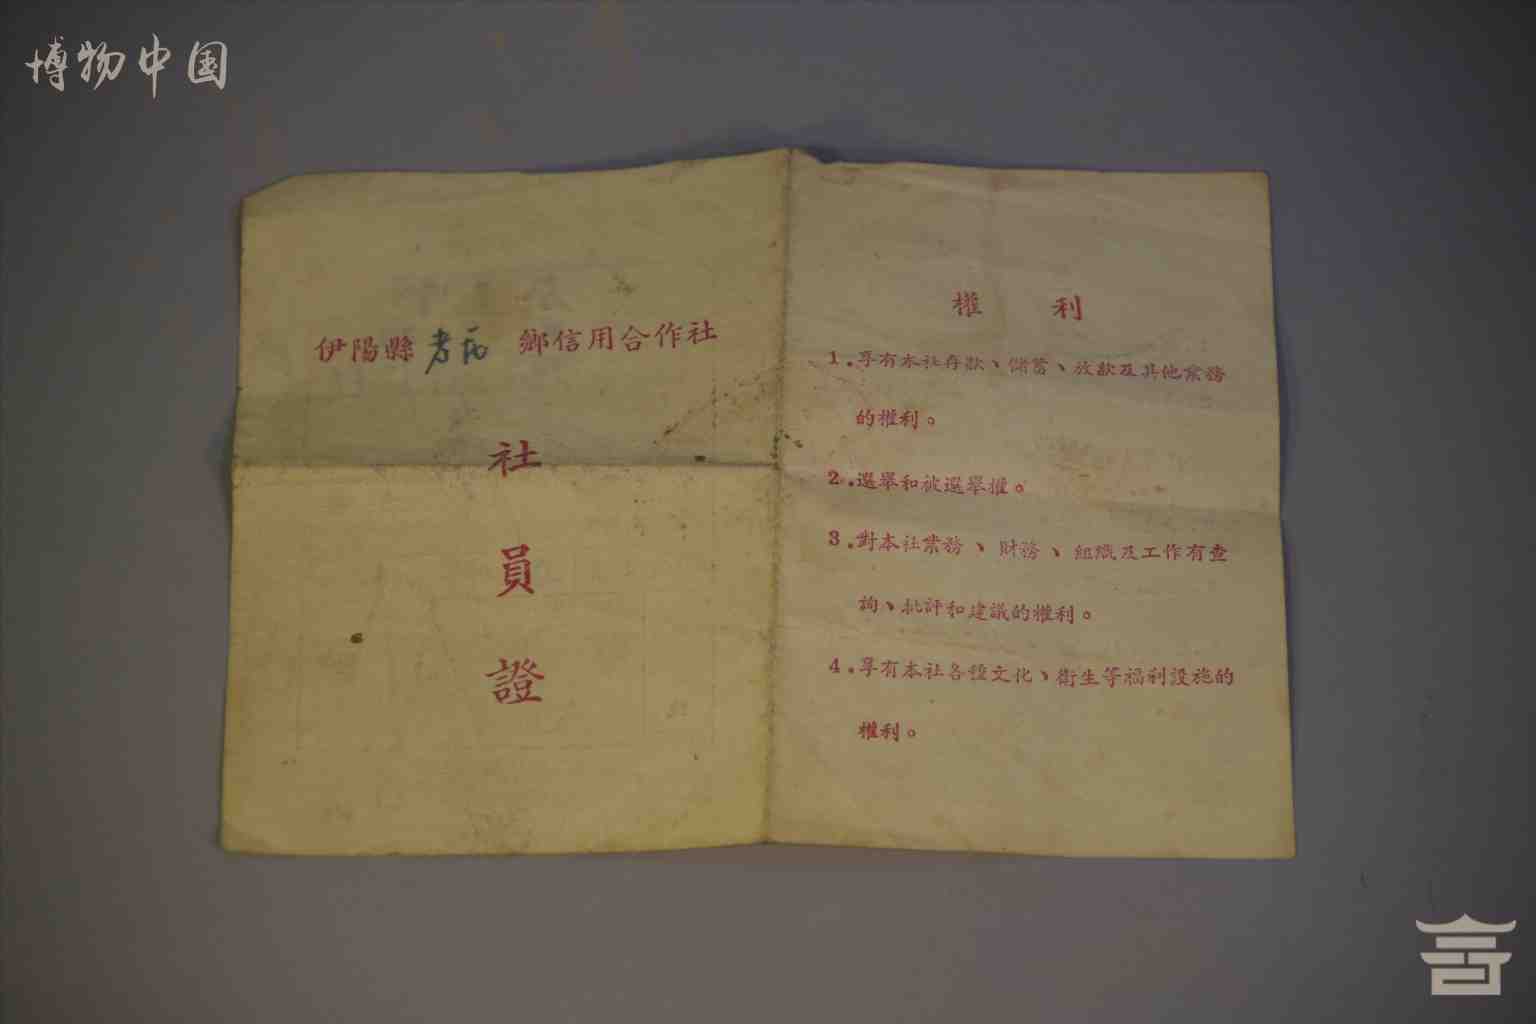 博物中国
伊陽縣 鄉信用合作社
社
員
證
權 利
1.享有本社存款、儲蓄、放款及其他業務
的權利。
2.選舉和被選舉權。
3.對本社業務、財務、組織及工作有查
詢、批評和建議的權利。
4.享有本社各種文化、衛生等福利設施的
權利。